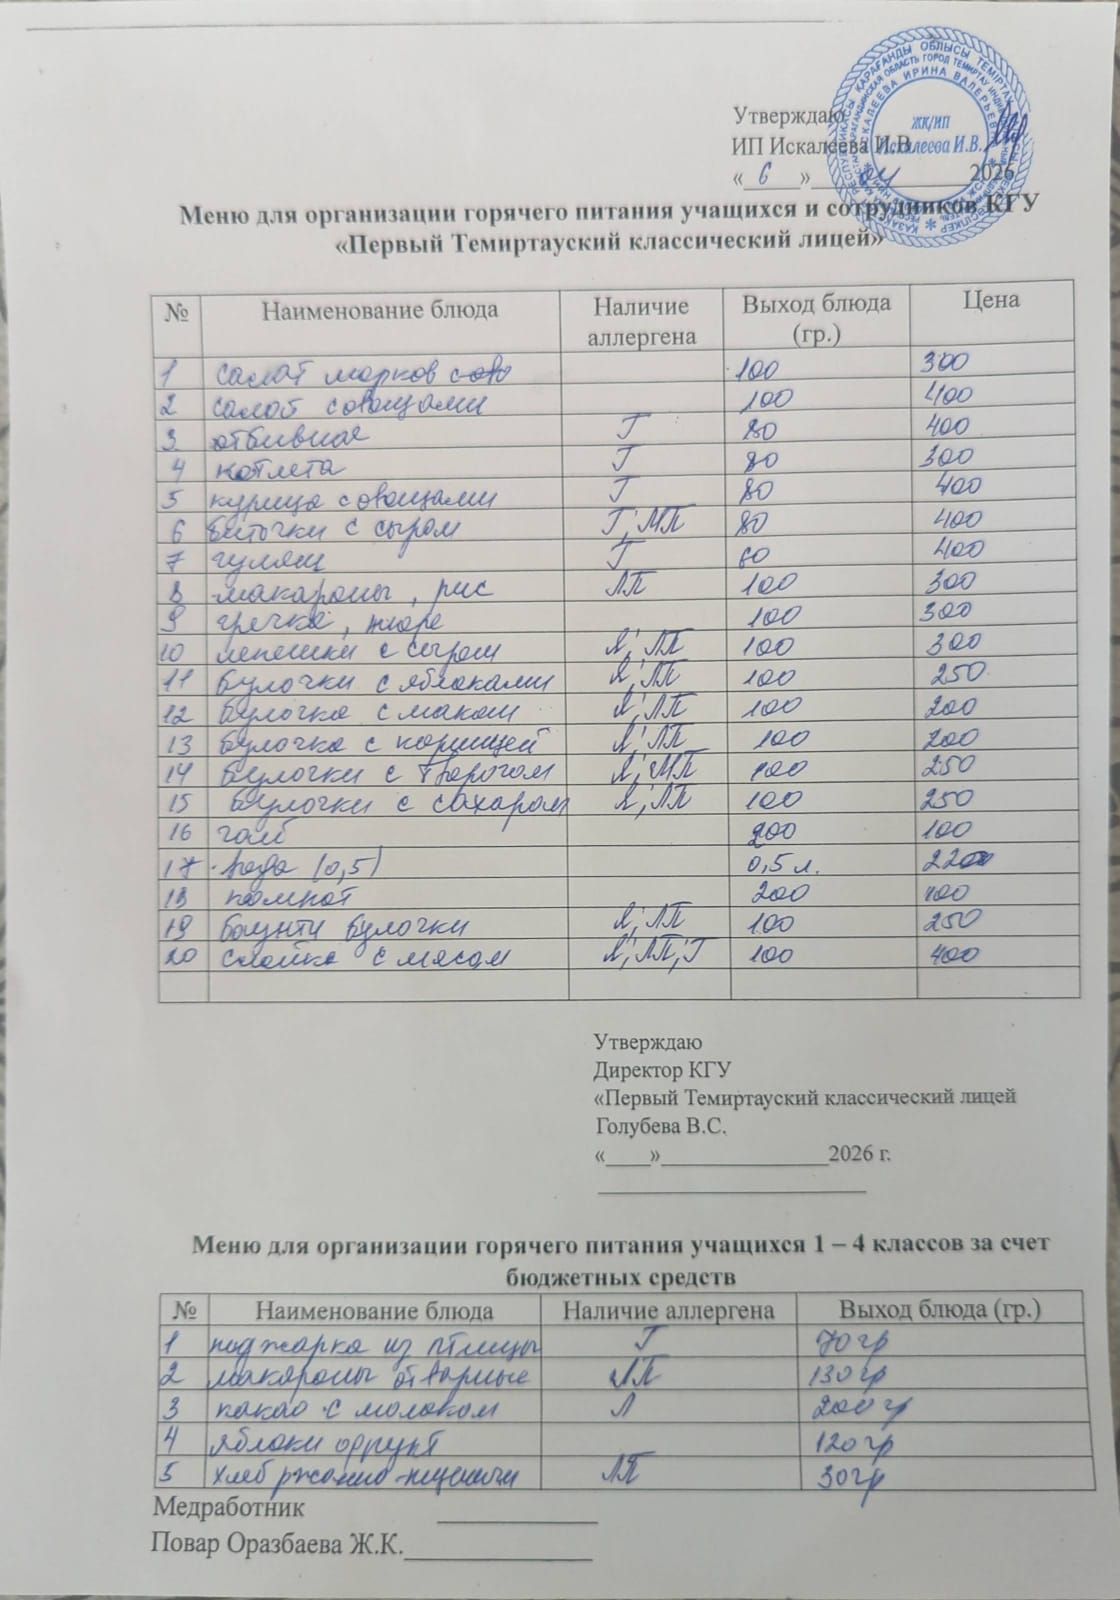 Утверждаю
ИП Искалеева И.В.
ЖК/ИП
Искалеева И.В.
«6» 04 2026
Меню для организации горячего питания учащихся и сотрудников КГУ
«Первый Темиртауский классический лицей»
№ Наименование блюда Наличие аллергена Выход блюда (гр.) Цена
1 салат морков 100 300
2 салат совощами 100 400
3 отбивная Г 80 400
4 котлета Г 80 300
5 курица с овощами Г 80 400
6 биточки с сыром Г; МП 80 400
7 гуляш Г 80 400
8 макароны, рис ЛП 100 300
9 гречка, пюре 100 300
10 лепешки с сыром Я; ЛП 100 300
11 булочки с яблоками Я; ЛП 100 250
12 булочка с маком Я; ЛП 100 200
13 булочка с корицей Я; ЛП 100 200
14 булочки с творогом Я; МП 100 250
15 булочки с сахаром Я; ЛП 100 250
16 чай 200 100
17 вода (0,5) 0,5 л. 220
18 компот 200 100
19 баунти булочки Я; ЛП 100 250
20 слойка с мясом Я; ЛП; Г 100 400
Утверждаю
Директор КГУ
«Первый Темиртауский классический лицей
Голубева В.С.
«____»_______________2026 г.
Меню для организации горячего питания учащихся 1 – 4 классов за счет
бюджетных средств
№ Наименование блюда Наличие аллергена Выход блюда (гр.)
1 поджарка из птицы Г 70гр
2 макароны отварные ЛП 130гр
3 какао с молоком Л 200гр
4 яблоки фрукт 120гр
5 хлеб ржано-пшеничн ЛП 30гр
Медработник
Повар Оразбаева Ж.К.